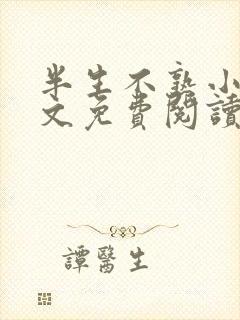 半生不熟小
文免費閱讀
譚醫生